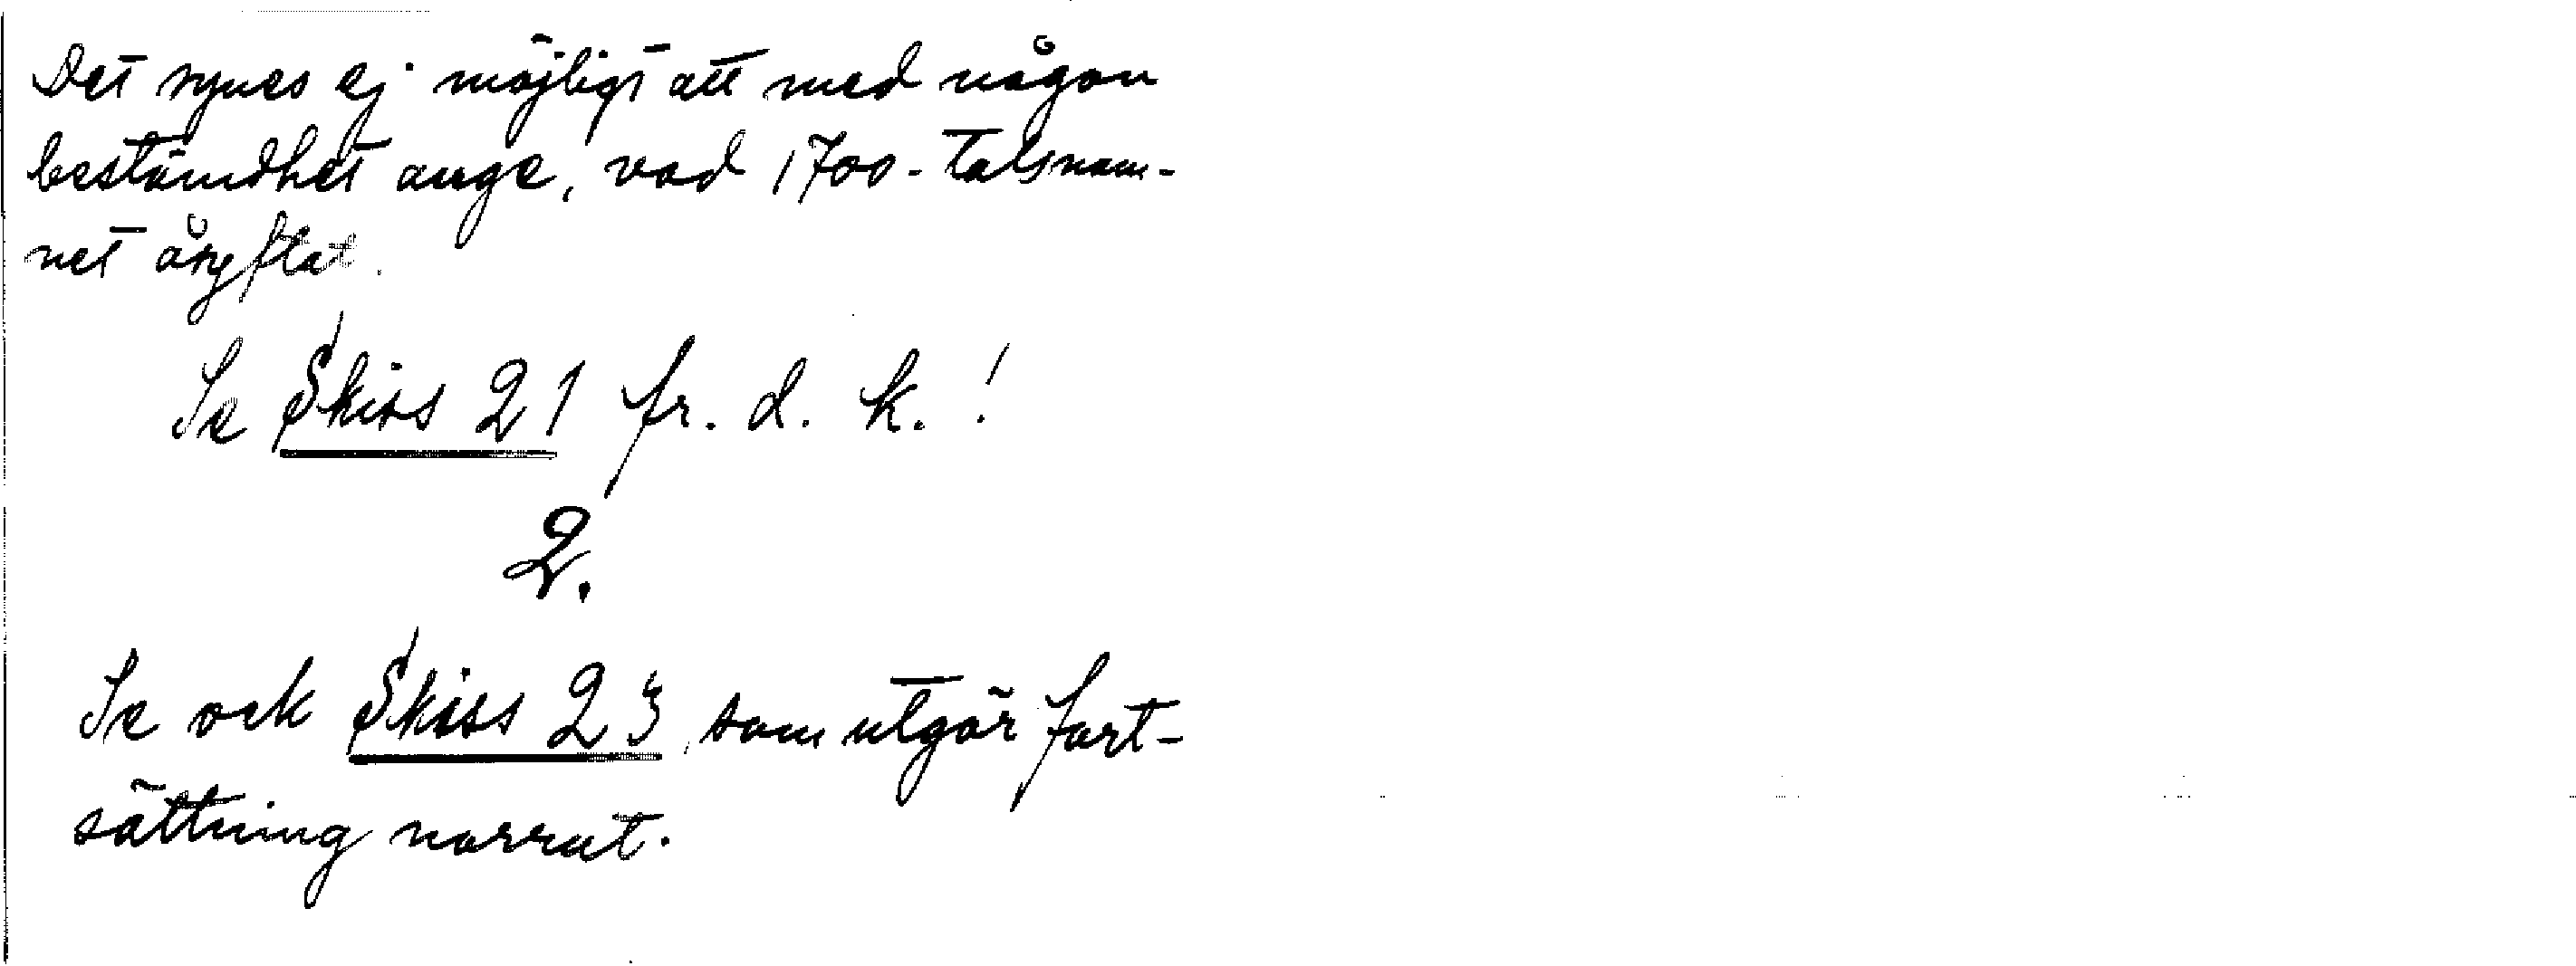 Det synes ej möjligt att med någon
bestämdhet ange, vad 1700-talsnam-
net åsyftat.
Se Skiss 21 fr. d. k. !
2.
Se ock Skiss 23, som utgör fort-
sättning norrut.